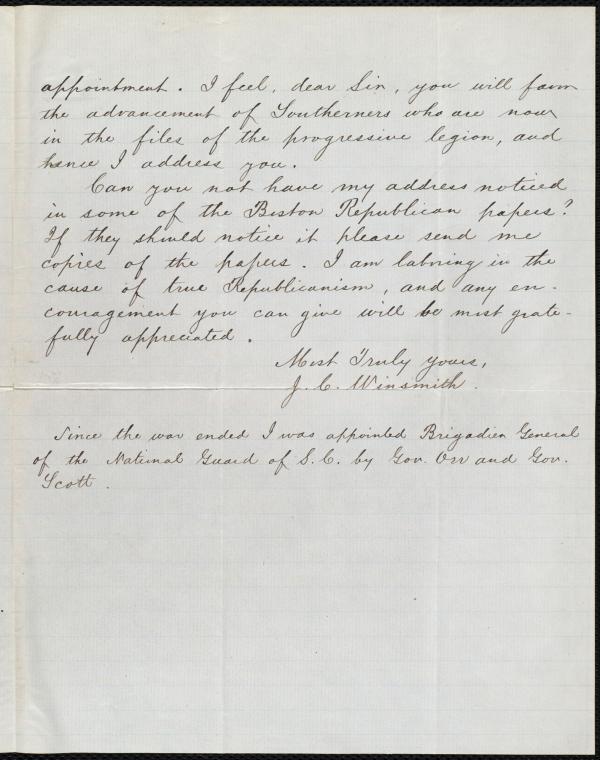 appointment. I feel, dear Sir, you will favor
the advancement of Southerners who are now
in the files of the progressive legion, and
hence I address you.
Can you not have my address noticed
in some of the Boston Republican papers?
If they should notice it please send me
copies of the papers. I am laboring in the
cause of true Republicanism, and any en-
couragement you can give will be most grate-
fully appreciated.
Most Truly yours,
J. C. Winsmith.
Since the war ended I was appointed Brigadier General
of the National Guard of S.C. by Gov. Orr and Gov.
Scott.